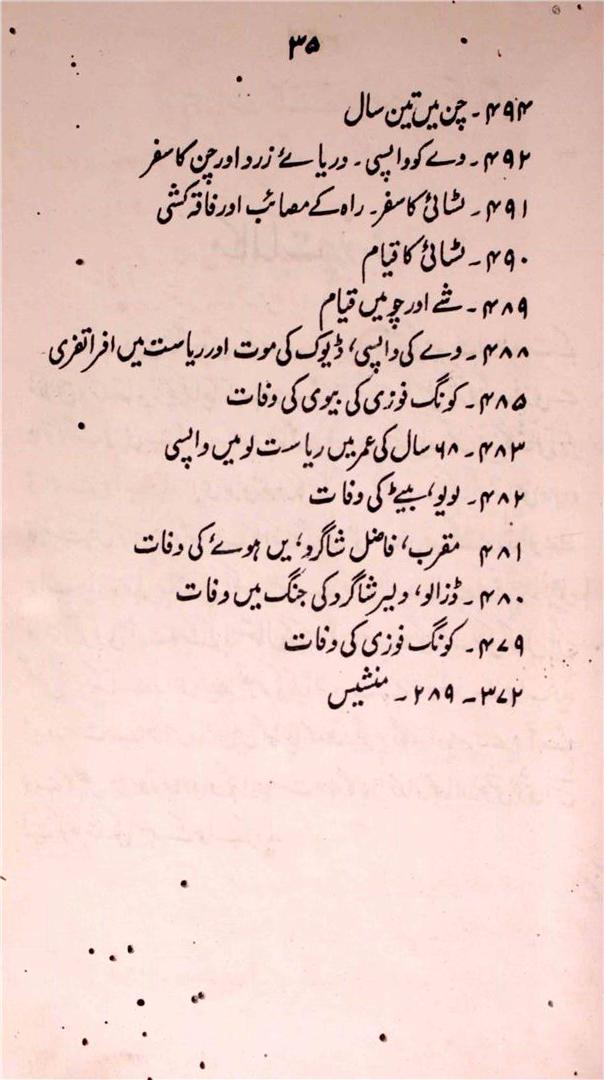 ۳۵
۴۹۴۔ چن میں تین سال
۴۹۲۔ وے کو واپسی۔ دریائے زرد اور چن کا سفر
۴۹۱۔ لٹسائی کا سفر۔ راہ کے مصائب اور فاقہ کشی
۴۹۰۔ لٹسائی کا قیام
۴۸۹۔ شے اور چو میں قیام
۴۸۸۔ وے کی واپسی، ڈیوک کی موت اور ریاست میں افراتفری
۴۸۵۔ کونگ فوزی کی بیوی کی وفات
۴۸۳۔ ۶۸ سال کی عمر میں ریاست لو میں واپسی
۴۸۲۔ لویو، بیٹے کی وفات
۴۸۱ مقرب، فاضل شاگرد، ین ہوئے کی وفات
۴۸۰۔ ڈزالو، دلیر شاگرد کی جنگ میں وفات
۴۷۹۔ کونگ فوزی کی وفات
۳۷۲۔ ۲۸۹۔ منشیس